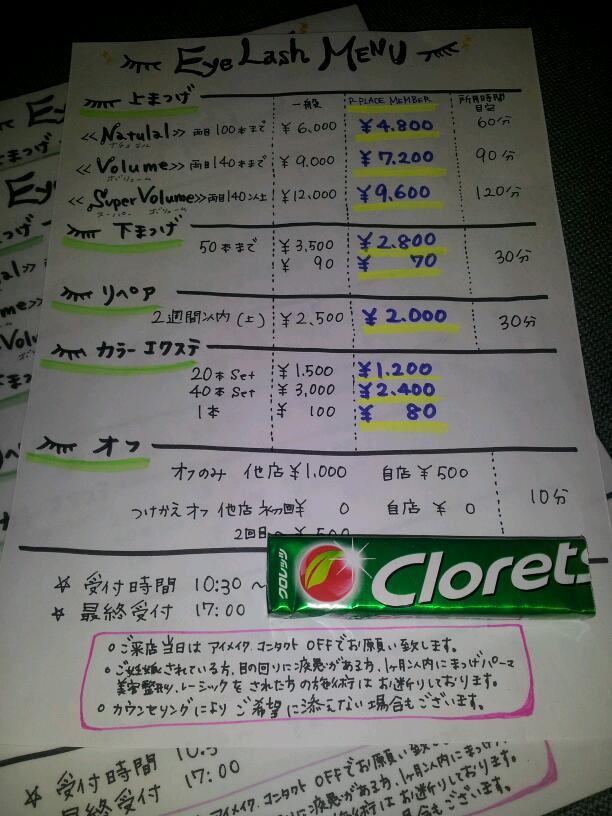 Eye Lash MENU
上まつげ 一般 P-PLACE MEMBER 所用時間 目安
≪Natulal≫ 両目100本まで ¥6,000 ¥4.800 60分
ナチュラル
≪Volume≫ 両目140本まで ¥9,000 ¥7,200 90分
ボリューム
≪Super Volume≫ 両目140以上 ¥12,000 ¥9,600 120分
スーパー ボリューム
下まつげ
50本まで ¥3,500 ¥2.800 30分
¥90 ¥70
リペア
2週間以内(上) ¥2,500 ¥2.000 30分
カラーエクステ
20本set ¥1.500 ¥1.200
40本set ¥3,000 ¥2.400
1本 ¥100 ¥80
オフ
オフのみ 他店¥1,000 自店¥500 10分
つけかえオフ 他店 初回¥0 自店¥0
2回目
☆ 受付時間 10:30～
☆ 最終受付 17:00
クロレッツ Clorets
○ご来店当日は アイメイク.コンタクト OFFでお願い致します。
○ご妊娠されている方.目の回りに疾患がある方.1ヶ月以内にまつげパーマ
美容整形.レーシックをされた方の施術はお断りしております。
○カウンセリングにより ご希望に添えない場合もございます。
☆ 受付時間
17:00